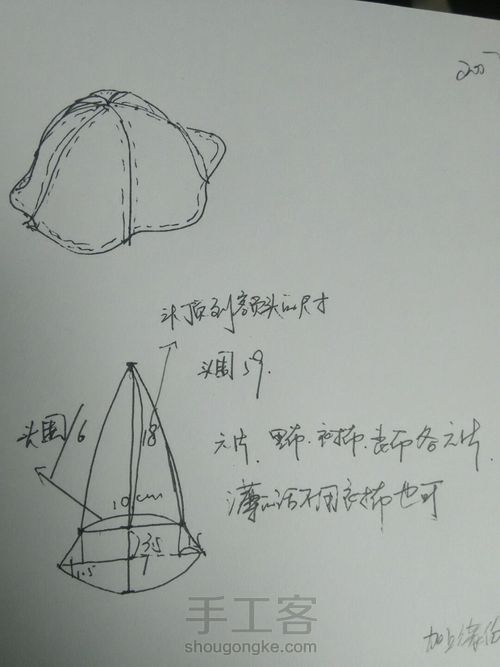 头顶到额头的尺寸
头围59.
头围/6
18
六片、里布.衬布.表布各六片.
薄的话不用衣衬布也可
10cm
3.5
1.5
手工客
shougongke.com